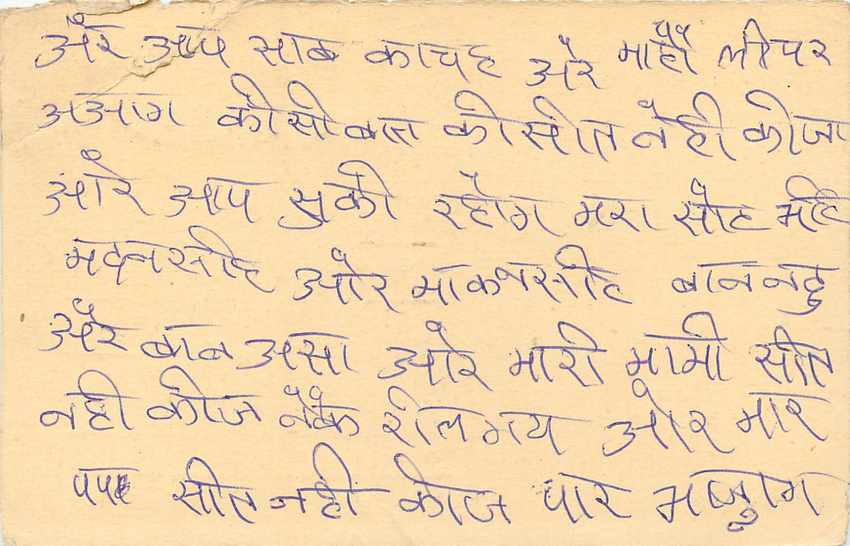 अैरे आप साब काचह अेरे माहौ लीपर
अआग कीसी बात की सीत नेही कीजा
औरे आप सुकी रहोग मरा सोह मीह
मदनसीह और माकनसीह बाननदु
अैरे बान असा और मारी मामी सीत
नही कीज नेक रीलगय और मार
पपा सीत नही कीज पार मज़ुग